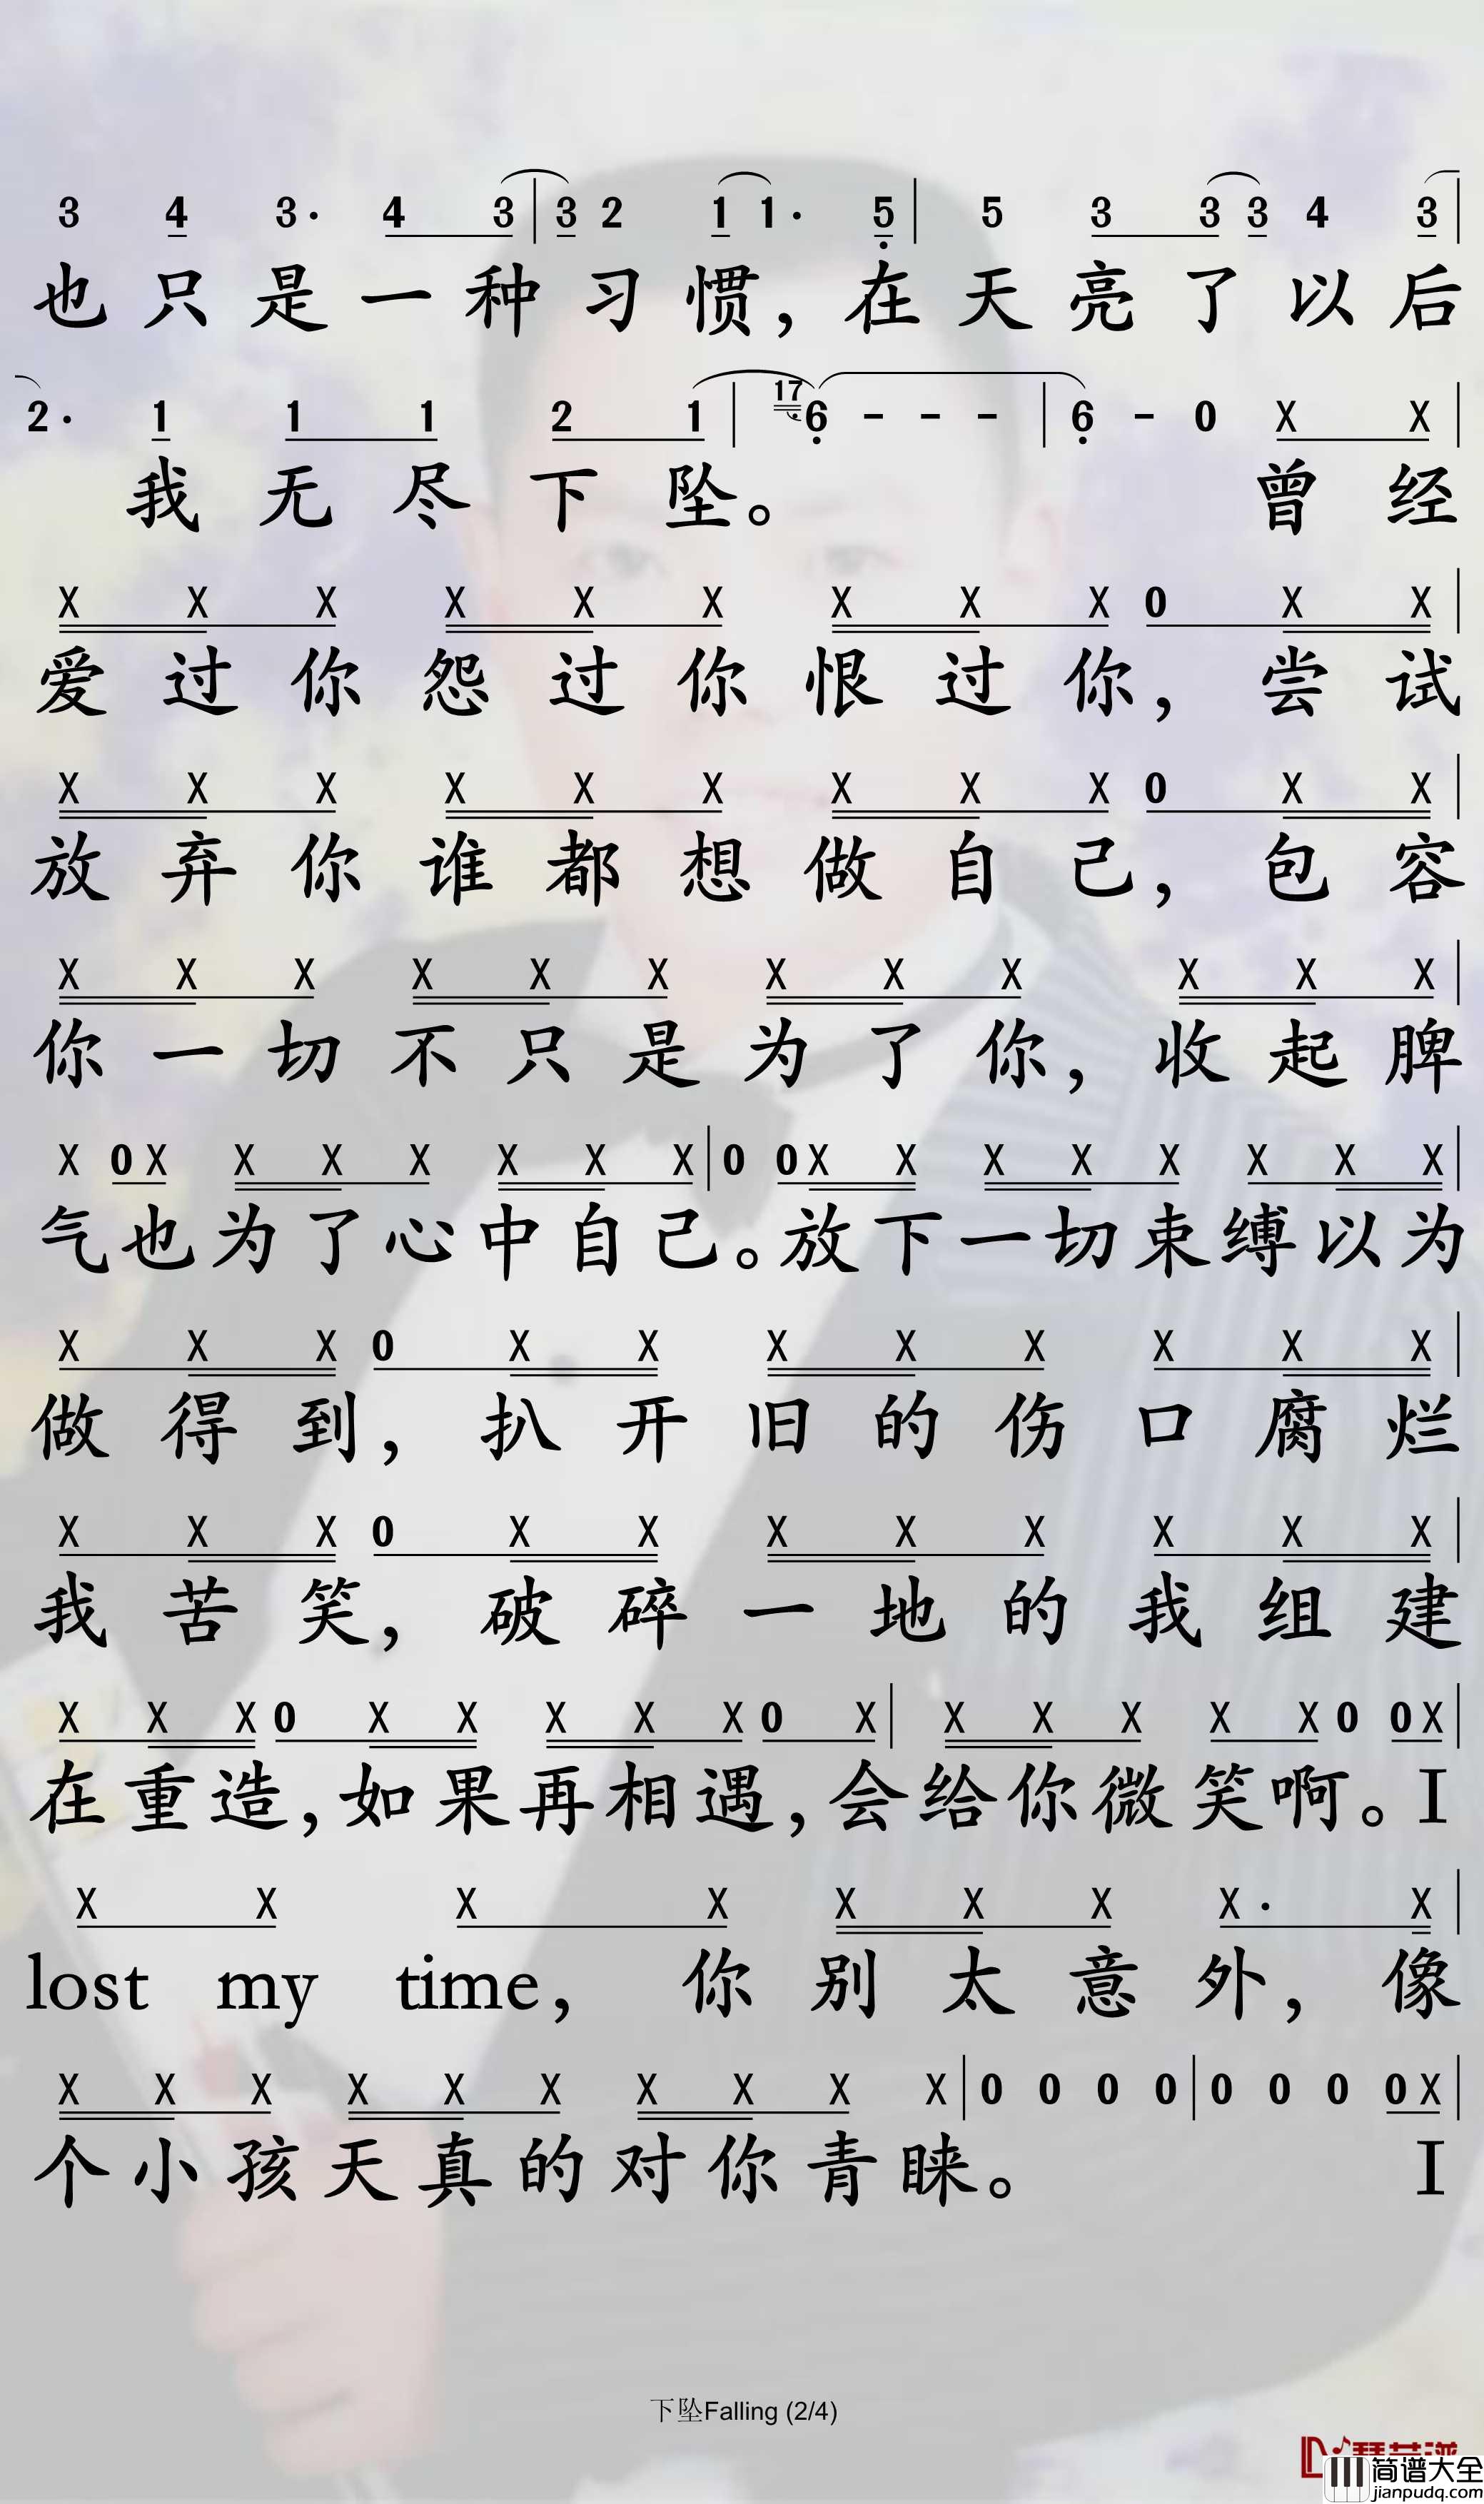 3 4 3· 4 3 | 3 2 1 1· 5 | 5 3 3 3 4 3 |
也只是一种习惯，在天亮了以后
2· 1 1 1 2 1 | 17 6 - - - | 6 - 0 X X |
我无尽下坠。 曾经
X X X X X X X X X 0 X X |
爱过你怨过你恨过你，尝试
X X X X X X X X X 0 X X |
放弃你谁都想做自己，包容
X X X X X X X X X X X X |
你一切不只是为了你，收起脾
X 0 X X X X X X X | 0 0 X X X X X X X X |
气也为了心中自己。放下一切束缚以为
X X X 0 X X X X X X X X |
做得到，扒开旧的伤口腐烂
X X X 0 X X X X X X X X |
我苦笑，破碎一地的我组建
X X X 0 X X X X X 0 X | X X X X X 0 0 X |
在重造，如果再相遇，会给你微笑啊。I
X X X X X X X X· X |
lost my time，你别太意外，像
X X X X X X X X X X | 0 0 0 0 | 0 0 0 0 X |
个小孩天真的对你青睐。 I
下坠Falling (2/4)
简谱大全
jianpudq.com